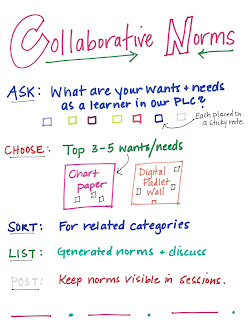 Collaborative Norms
ASK: What are your wants + needs
as a learner in our PLC?
Each placed on
a sticky note.
CHOOSE: Top 3-5 wants/needs
Chart
paper
Digital
Padlet
Wall
SORT: For related categories
LIST: Generated norms + discuss
POST: Keep norms visible in sessions.